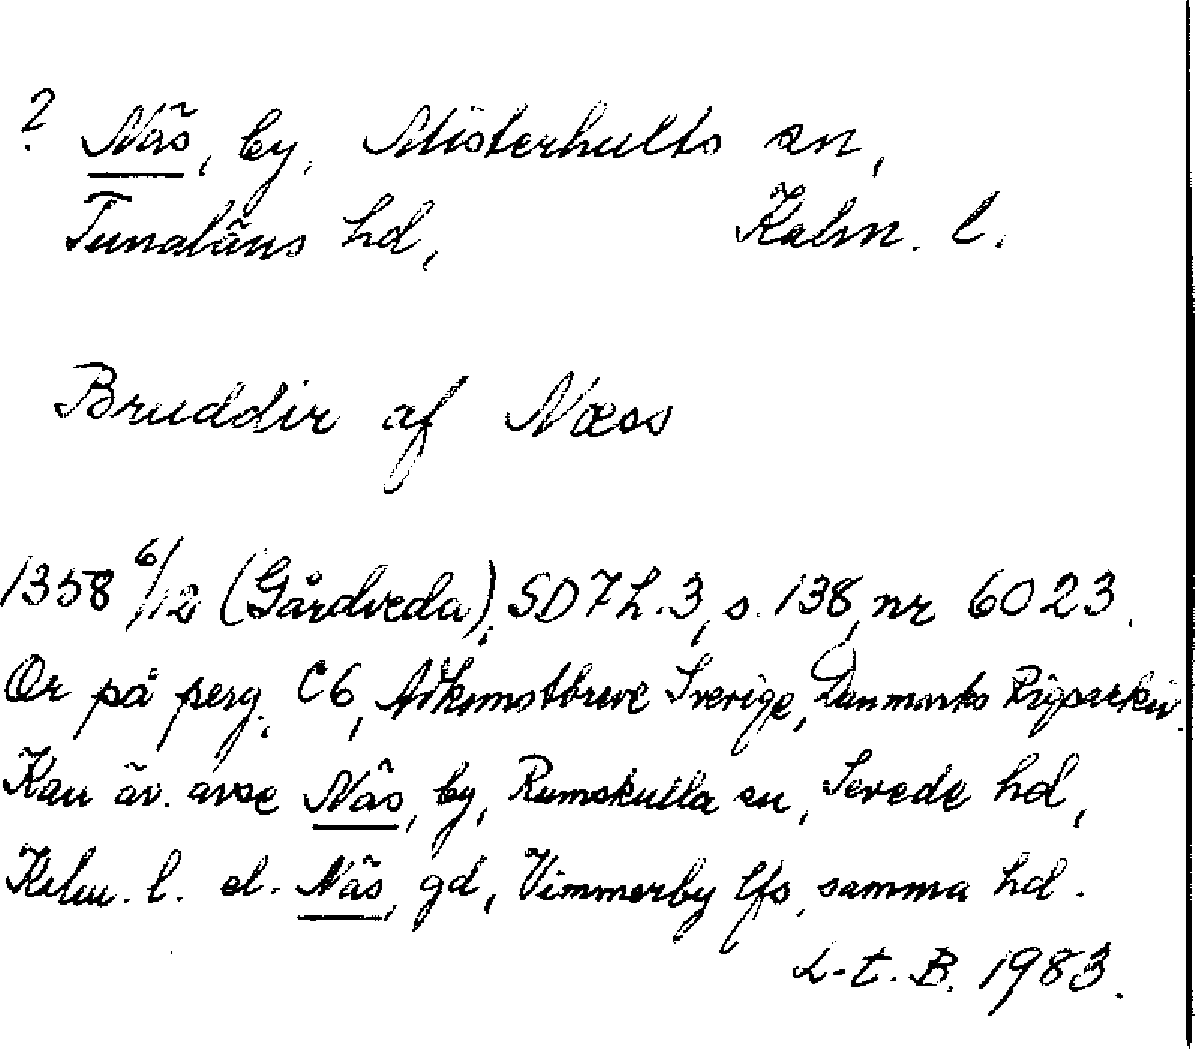 ? Näs, by, Misterhults sn,
Tunaläns hd, Kalm. l.
Bruddir af Næss
1358 6/12 (Gårdveda), SD 7 h. 3, s. 138, nr 6023.
Or på perg. C6, Adkomstbreve Sverige, Danmarks Rigsarkiv.
Kan äv. avse Näs, by, Rumskulla sn, Sevede hd,
Kalm. l. el. Näs, gd, Vimmerby lfs, samma hd.
L-t. B. 1983.